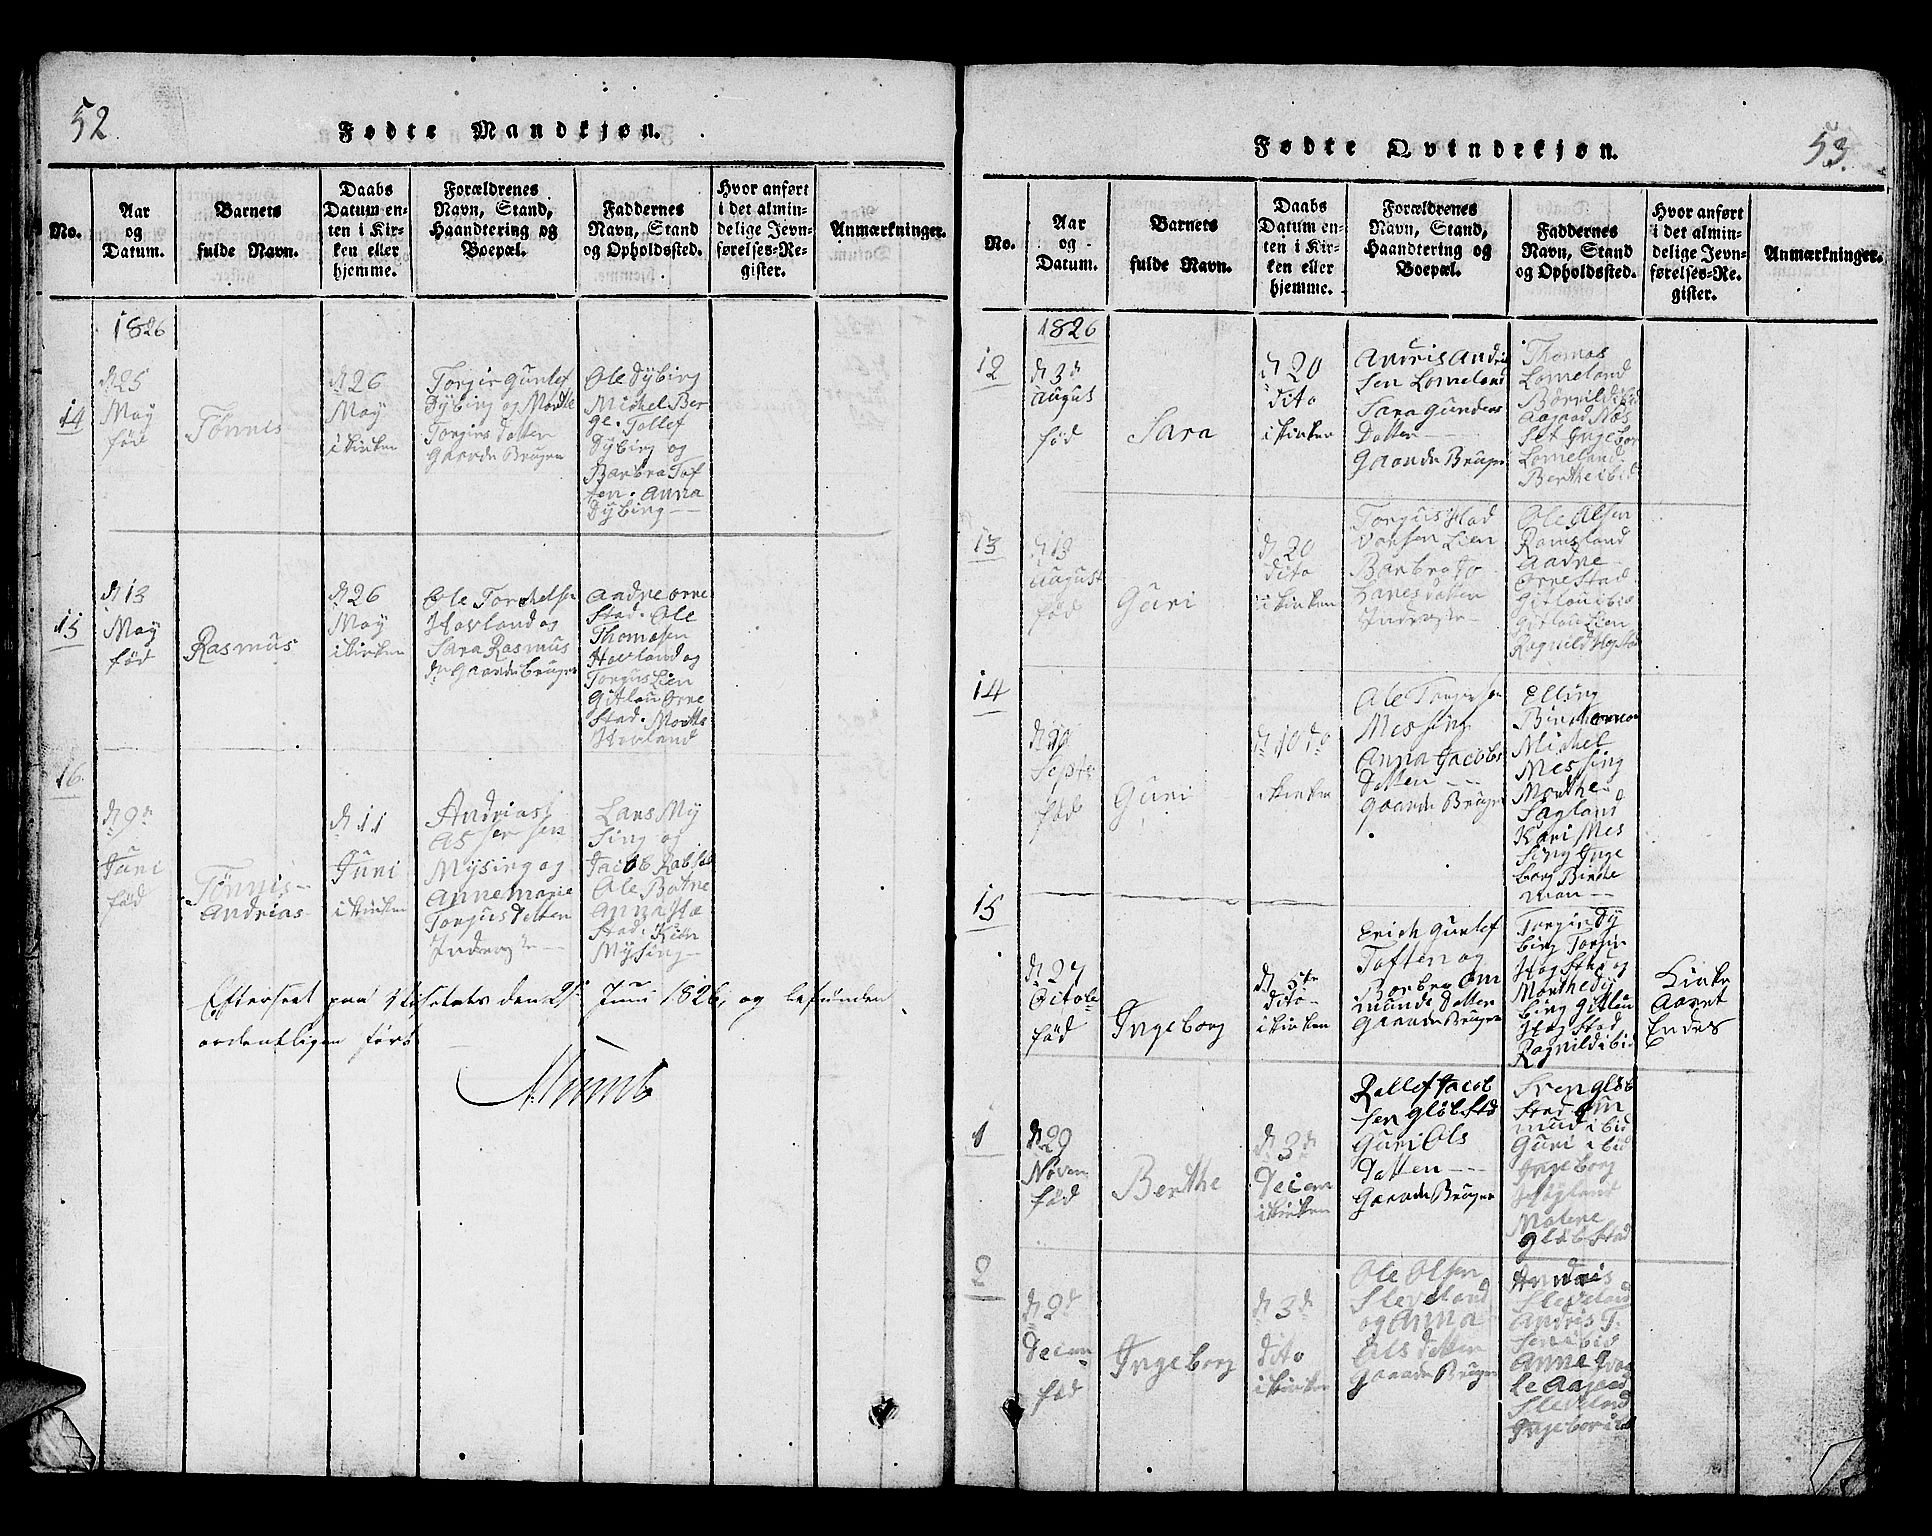 52.
Fødte Mandkjøn.
No.
Aar
og
Datum.
Barnets
fulde Navn.
Daabs
Datum en-
ten i Kir-
ken eller
hjemme.
Forældrenes
Navn, Stand,
Haandtering og
Boepæl.
Faddernes
Navn, Stand
og Opholdssted.
Hvor anført
i det almin-
delige Jevn-
førelses-Re-
gister.
Anmærkninger.
1826
14
d 25
May
fød
Tønnis
d 26
May
i kirken
Torgir Gunlef
Dÿbing og Morthe
Torgirs Datter
Gaarde Bruger
Ole Dÿbing
Michel Ber
ge. Tollef
Dÿbing og
Barbra Tof
ten. Anna
Dÿbing
15
d 13
May
fød
Rasmus
d 26
May
i kirken
Ole Torchelsen
Hovland og
Sara Rasmus
dr Gaarde bruger
Andre Orne
Stad. Ole
Thomasen
Hovland og
Torgus Lien
Gitlau Orne
Stad. Morthe
Hovland
16
d 9
Juni
fød
Tønnis
Andrias
d 11
Juni
i kirken
Andrias
Assersen
Mÿsing og
Anne marie
Torgus Datter
Inderste
Lars Mÿ
sing og
Jacob
Ole Botne
Anna
Stad.
Mÿsing
Efterseet paa den 2 Juni 1826, og befunden
ordentligen ført
53.
Fødte Qvindekjøn.
No.
Aar
og
Datum.
Barnets
fulde Navn.
Daabs
Datum en-
ten i Kir-
ken eller
hjemme.
Forældrenes
Navn, Stand,
Haandtering og
Boepæl.
Faddernes
Navn, Stand
og Opholdssted.
Hvor anført
i det almin-
delige Jevn-
førelses-Re-
gister.
Anmærkninger.
1826
12
d 3d
August
fød
Sara
d 20
dito
i kirken
Andris Andri
sen Lomeland
Sara Gunders
Datter
Gaarde Bruger
Thomas
Lomeland
Aagaad Næs
Set Ingebor
Lomeland
Berthe ibid
13
d 13
August
fød
Guri
d 20
dito
i kirken
Torgus Had
vorsen Lien
Barbra To
Larsdatter
Inderste
Ole Olsen
Ramsland
Aadne
Orne Stad
Gitlau ibid
Gitlau Lien
Ragnild Hogstad
14
Septe
fød
Guri
d 10 do
i kirken
Ole Torgersen
Messing
Anna Jacobs
Datter
Gaarde Bruger
Elling
Birchemon
Michel
Messing
Morthe
Sagland
Kari Mes
sing Inge
borg Birche
mon
15
d 27
Octobe
fød
Ingeborg
d 5te
dito
i kirken
Erich Gunlef
Toften og
Barbra Om
munds Datter
Gaarde Bruger
Torgir Dÿ
bing Torgir
Hog Sthd og
Morthe Dÿ
bing Gitlau
Hog Stad
Ragnild ibid
Kirke
Aaret
Endes
1
d 29
Novem
fød
Berthe
d 3d
Decem
i kirken
Rollef Jacob
sen Gløbstad
Guri Ols
Datter
Gaarde Bruger
Sven Gløb
stad Om
mund ibid
Guri ibid
Ingeborg
Høÿland
Malene
Gløbstad
2
d 2d
Decem
fød
Ingeborg
d 3d
dito
i kirken
Ole Olsen
Sleveland
og Anna
Ols Datter
Gaarde Bruger
Andris
Sleveland
Andris T.
sen ibid
Anna
Sleveland
Ingebor ibid